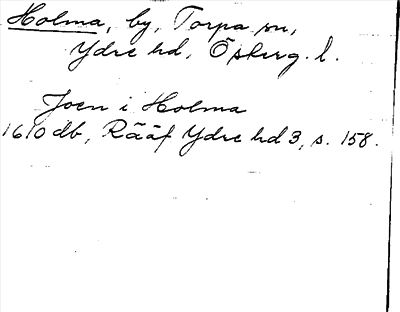 Holma, by, Torpa sn,
Ydre hd, Östergöt. l.
Joen i Holma
1610 db, Rääf Ydre hd 3, s. 158.